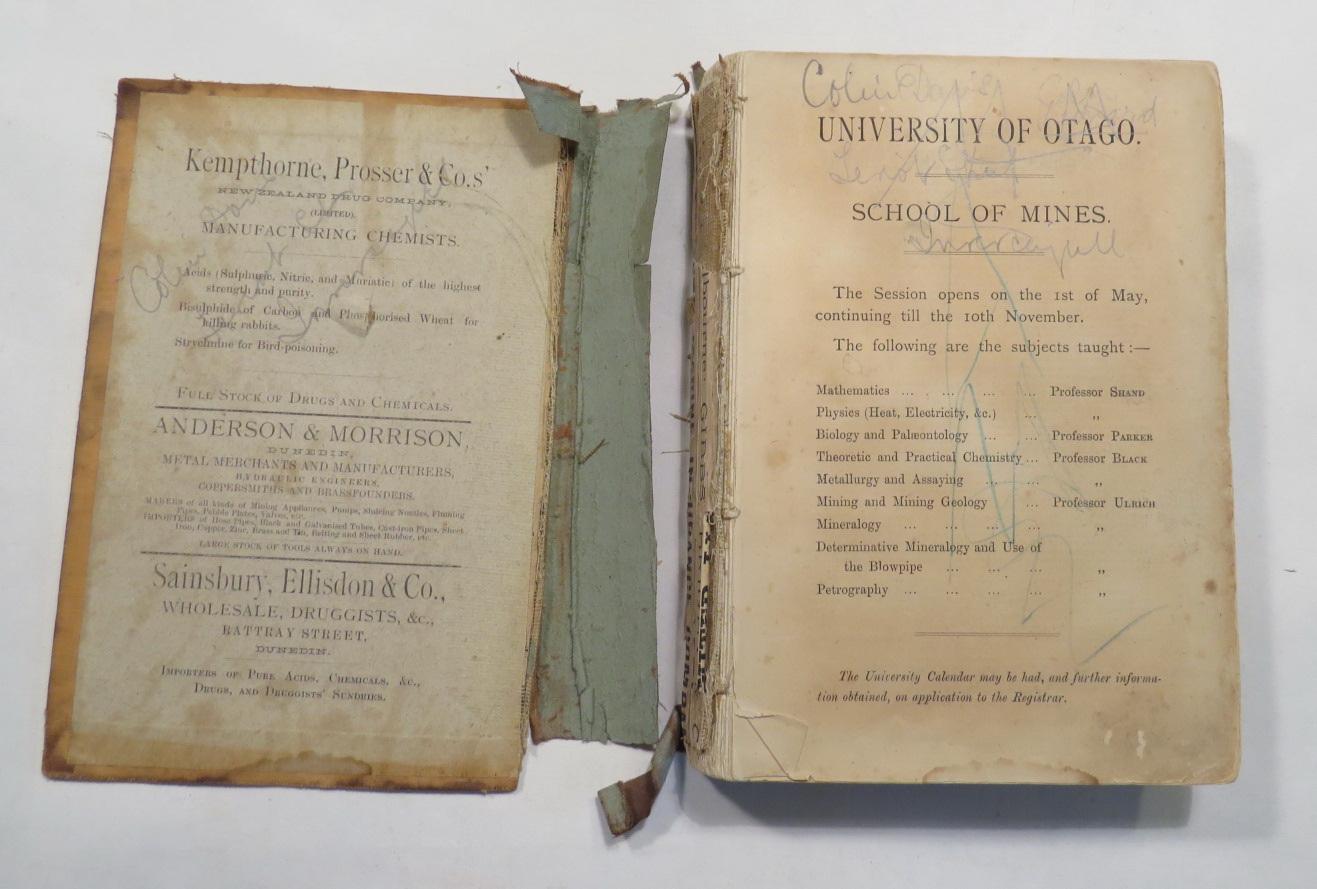 Kempthorne, Prosser & Co.s'
NEW ZEALAND DRUG COMPANY,
(LIMITED),
MANUFACTURING CHEMISTS.
Acids (Sulphuric, Nitric, and Muriatic) of the highest
strength and purity.
Bisulphide of Carbon and Phosphorised Wheat for
killing rabbits.
Strychnine for Bird-poisoning.
FULL STOCK OF DRUGS AND CHEMICALS.
ANDERSON & MORRISON,
DUNEDIN,
METAL MERCHANTS AND MANUFACTURERS,
HYDRAULIC ENGINEERS,
COPPERSMITHS AND BRASSFOUNDERS.
MAKERS of all kinds of Mining Appliances, Pumps, Sluicing Nozzles, Fluming
Pipes, Pebble Plates, Valves, etc.
IMPORTERS of Hose Pipes, Black and Galvanised Tubes, Cast-iron Pipes, Sheet
Iron, Copper, Zinc, Brass and Tin, Belting and Sheet Rubber, etc.
LARGE STOCK OF TOOLS ALWAYS ON HAND.
Sainsbury, Ellisdon & Co.,
WHOLESALE, DRUGGISTS, &c.,
RATTRAY STREET,
DUNEDIN.
IMPORTERS OF PURE ACIDS, CHEMICALS, &c.,
DRUGS, AND DRUGGISTS' SUNDRIES.
Colin
UNIVERSITY OF OTAGO.
SCHOOL OF MINES.
Invercargill
The Session opens on the 1st of May,
continuing till the 10th November.
The following are the subjects taught :—
Mathematics ... ... ... ... Professor SHAND
Physics (Heat, Electricity, &c.) ... ... „
Biology and Palæontology ... ... Professor PARKER
Theoretic and Practical Chemistry ... Professor BLACK
Metallurgy and Assaying ... ... „
Mining and Mining Geology ... Professor ULRICH
Mineralogy ... ... ... ... „
Determinative Mineralogy and Use of
the Blowpipe ... ... ... „
Petrography ... ... ... ... „
The University Calendar may be had, and further informa-
tion obtained, on application to the Registrar.